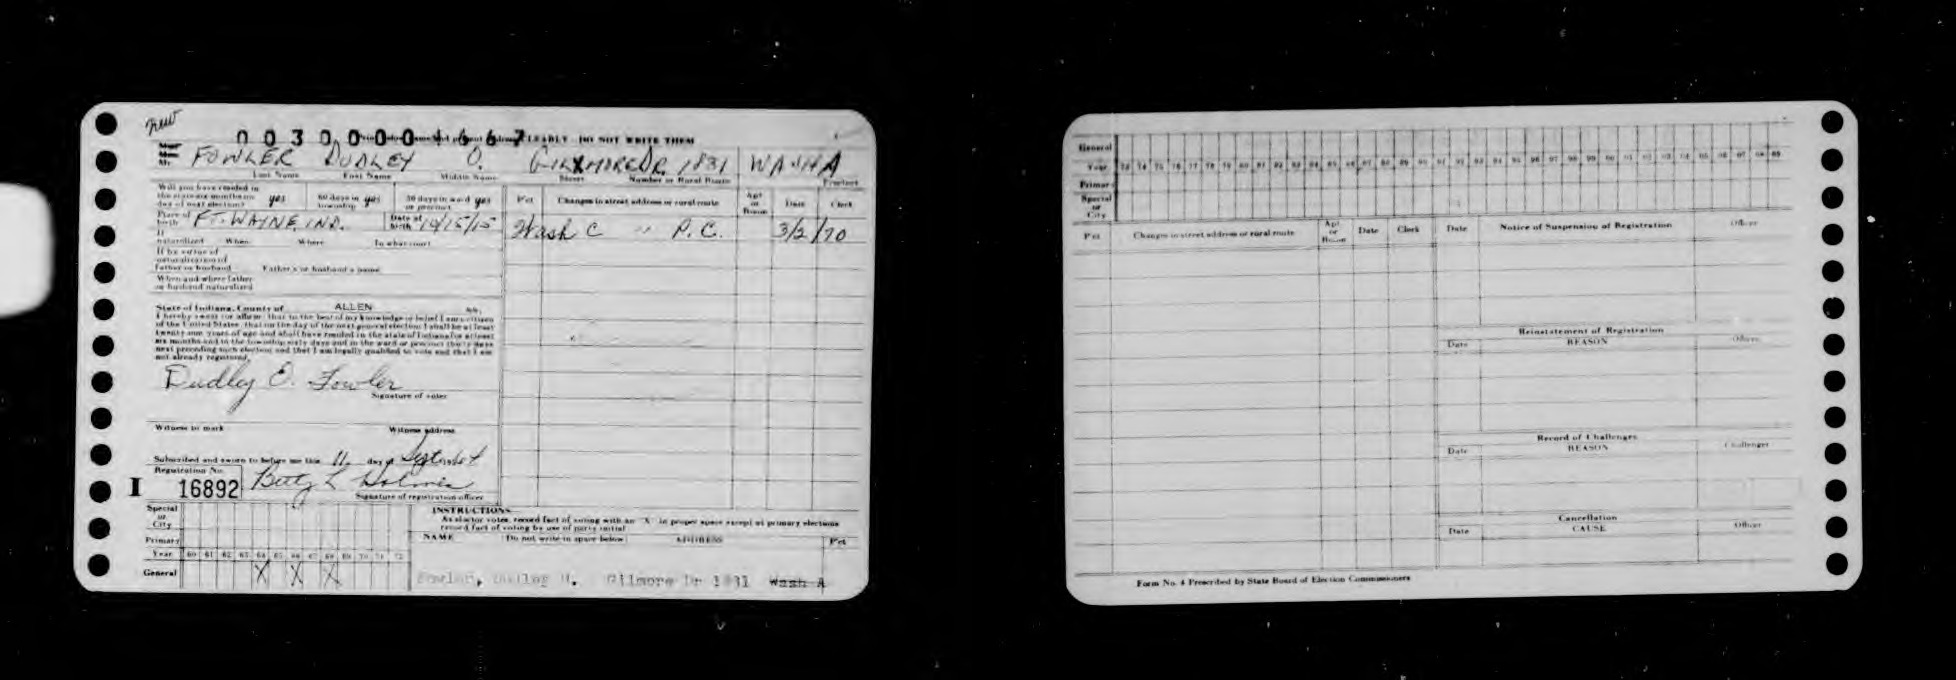 new
0030000 4667 CLEARLY DO NOT WRITE THEM
FOWLER DUDLEY O. GILMORE DR. 1831 WASH A
Last Name First Name Middle Name Street Number or Rural Route Precinct
Will you have resided in the state six months on day of next election? yes 60 days in township yes 30 days in ward or precinct yes
Place of birth FT. WAYNE, IND. Date of birth 10/15/15
If naturalized When Where In what court
If by virtue of naturalization of father or husband Father's or husband's name
When and where father or husband naturalized
State of Indiana, County of ALLEN ss:
I hereby swear (or affirm) that to the best of my knowledge or belief I am a citizen
of the United States, that on the day of the next general election I shall be at least
twenty-one years of age and shall have resided in the state of Indiana for at least
six months and in the township sixty days and in the ward or precinct thirty days
next preceding such election and that I am legally qualified to vote and that I am
not already registered.
Dudley O. Fowler
Signature of voter
Witness to mark Witness address
Subscribed and sworn to before me this 11 day of
Registration No. Betty L Holmes
I 16892 Signature of registration officer
Pct Changes in street address or rural route Apt or Room Date Clerk
Wash C " P.C. 3/2/70
Special or City
Primary
Year 60 61 62 63 64 65 66 67 68 69 70 71 72
General X X X
INSTRUCTIONS
As elector votes, record fact of voting with an "X" in proper space except at primary elections
record fact of voting by use of party initial
NAME Do not write in space below ADDRESS Pct
Fowler, Dudley O. Gilmore Dr 1831 Wash A
General
Year 73 74 75 76 77 78 79 80 81 82 83 84 85 86 87 88 89 90 91 92 93 94 95 96 97 98 99
Primary
Special or City
Pct Changes in street address or rural route Apt or Room Date Clerk Date Notice of Suspension of Registration Officer
Reinstatement of Registration
Date REASON Officer
Record of Challenges
Date REASON Challenger
Cancellation
Date CAUSE Officer
Form No. 4 Prescribed by State Board of Election Commissioners